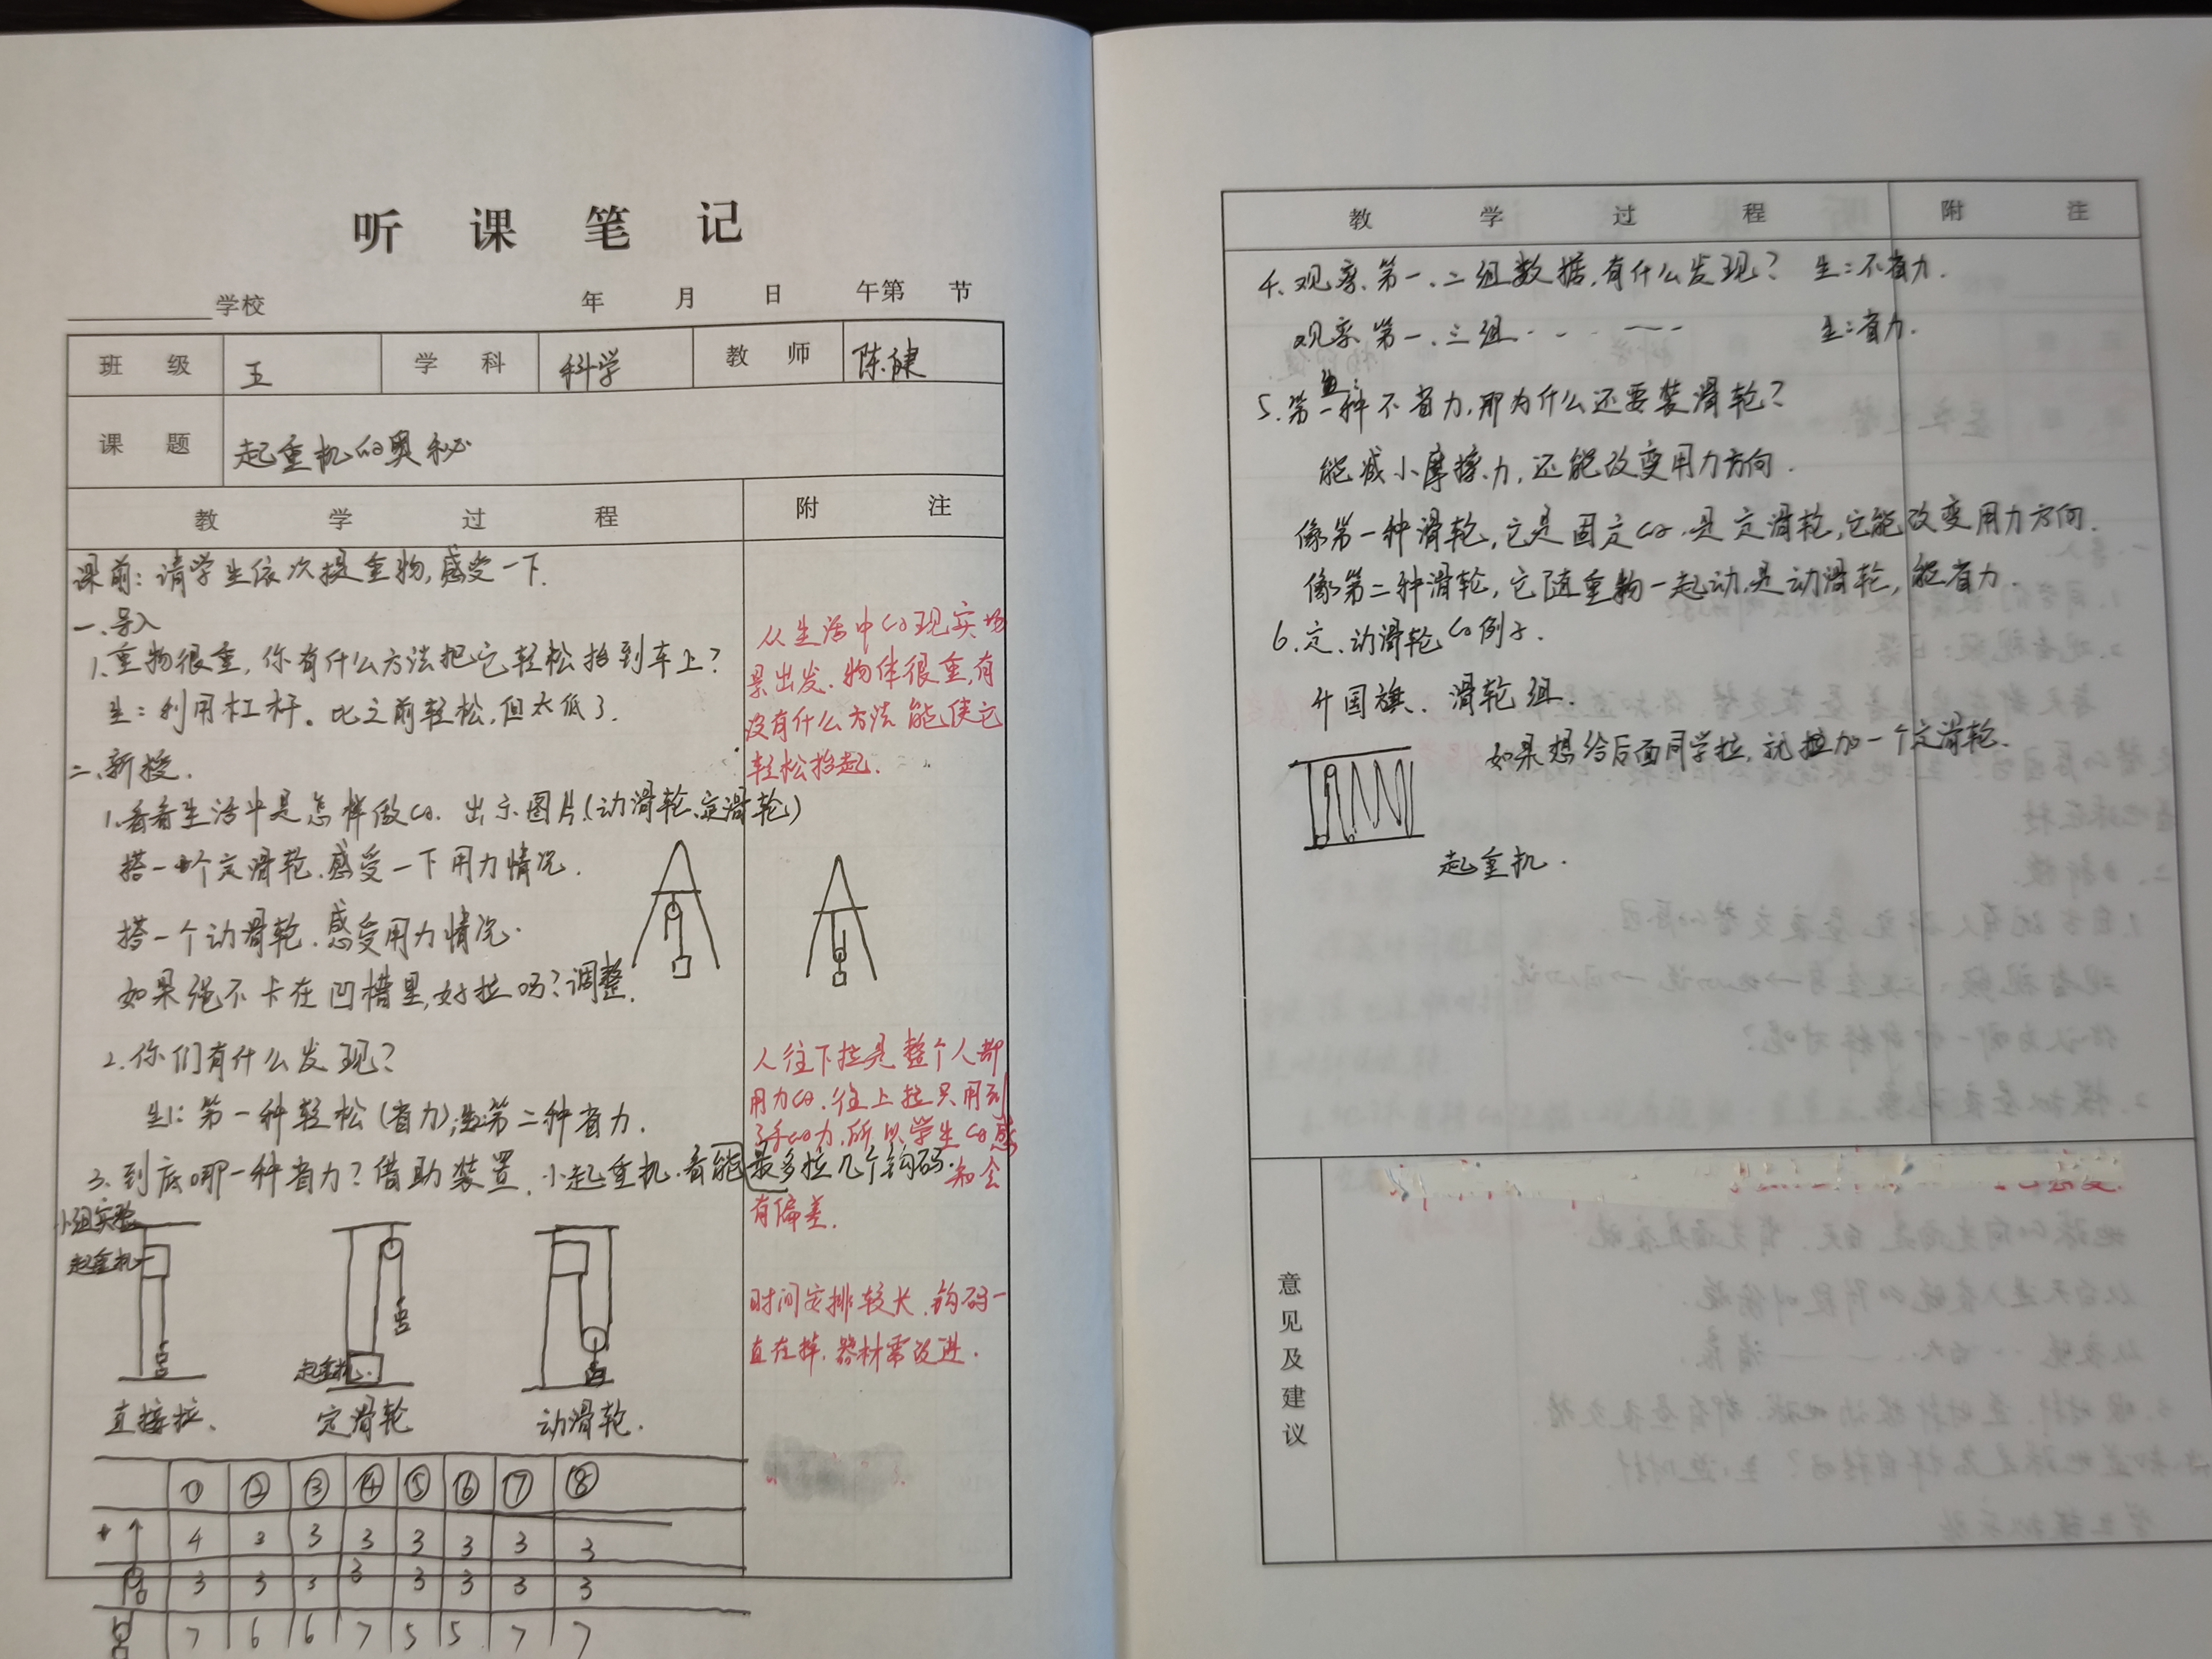 听课笔记
学校 年 月 日 午第 节
班级 五 学科 科学 教师 陈健
课题 起重机的奥秘
教学过程 附注
课前：请学生依次提重物，感受一下．
一、导入
1.重物很重，你有什么方法把它轻松抬到车上？
生：利用杠杆。比之前轻松，但太低了．
二、新授．
1.看看生活中是怎样做的．出示图片．(动滑轮、定滑轮)
搭一个定滑轮．感受一下用力情况．
搭一个动滑轮．感受用力情况．
如果绳不卡在凹槽里，好拉吗？调整．
2.你们有什么发现？
生1：第一种轻松(省力)；生：第二种省力．
3.到底哪一种省力？借助装置、小起重机．看能最多拉几个钩码．
小组实验
起重机
起重机
直接拉、 定滑轮 动滑轮．
① ② ③ ④ ⑤ ⑥ ⑦ ⑧
4 3 3 3 3 3 3 3
3 3 3 3 3 3 3 3
7 6 6 7 5 5 7 7
从生活中的现实场
景出发．物体很重，有
没有什么方法能使它
轻松抬起．
人往下拉是整个人都
用力的．往上拉只用到
了手的力．所以学生的感
知会
有偏差．
时间安排较长．钩码一
直在掉．器材需改进．
教学过程 附注
4、观察、第一、二组数据，有什么发现？ 生：不省力．
观察、第一、三组 生：省力．
5.第一种不省力，那为什么还要装滑轮？
能减小摩擦力，还能改变用力方向．
像第一种滑轮，它是固定的．是定滑轮，它能改变用力方向．
像第二种滑轮，它随重物一起动．是动滑轮，能省力．
6.定、动滑轮的例子．
升国旗、滑轮组．
如果想给后面同学拉，就拉加一个定滑轮．
起重机．
意见及建议